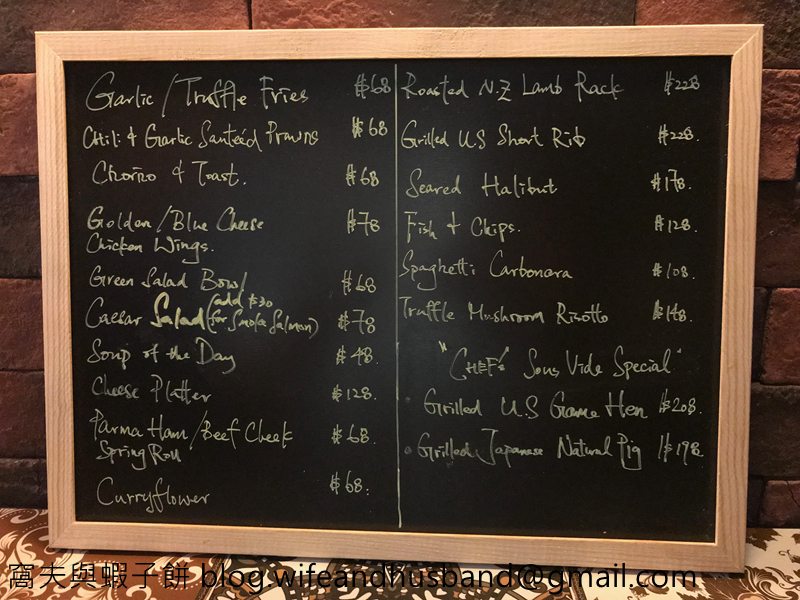 Garlic / Truffle Fries $68
Chili & Garlic Santeéd Prawns $68
Chorizo & Toast. $68
Golden / Blue Cheese $78
Chicken Wings.
Green Salad Bowl $68
Caesar Salad (add $30 for Smoke Salmon) $78
Soup of the Day $48.
Cheese Platter $128.
Parma Ham / Beef Cheek $68.
Spring Roll
Curryflower $68.
Roasted N.Z Lamb Rack $228
Grilled US Short Rib $228.
Seared Halibut $178.
Fish & Chips. $128.
Spaghetti Carbonara $108.
Truffle Mushroom Risotto $148.
"CHEF" Sous Vide Special"
• Grilled U.S Game Hen $208.
• Grilled Japanese Natural Pig $198.
窩夫與蝦子餅 blog.wifeandhusband@gmail.com